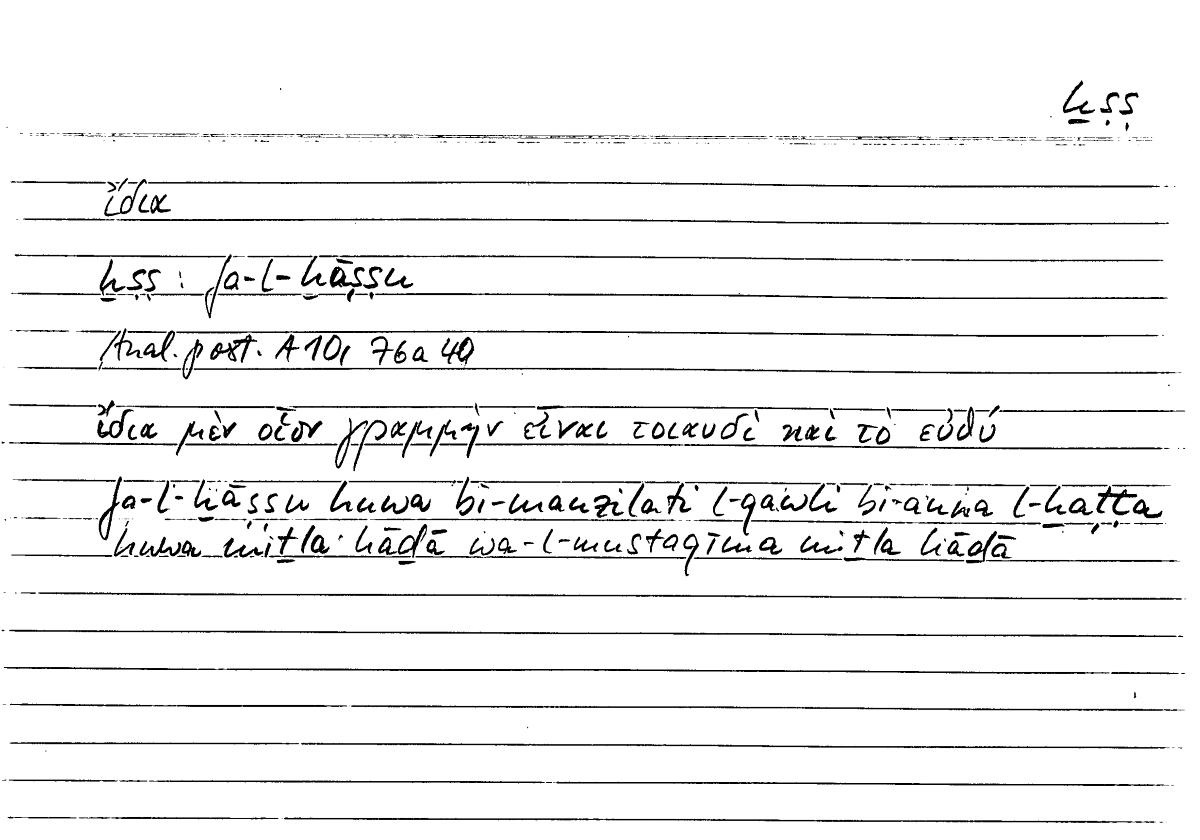 ḫṣṣ
ἴδια
ḫṣṣ : fa-l-ḫāṣṣu
Anal. post. A 10, 76a 40
ἴδια μὲν οἷον γραμμὴν εἶναι τοιαυδὶ καὶ τὸ εὐθύ
fa-l-ḫāṣṣu huwa bi-manzilati l-qawli bi-anna l-ḫaṭṭa
huwa miṯla hāḏā wa-l-mustaqīma miṯla hāḏā